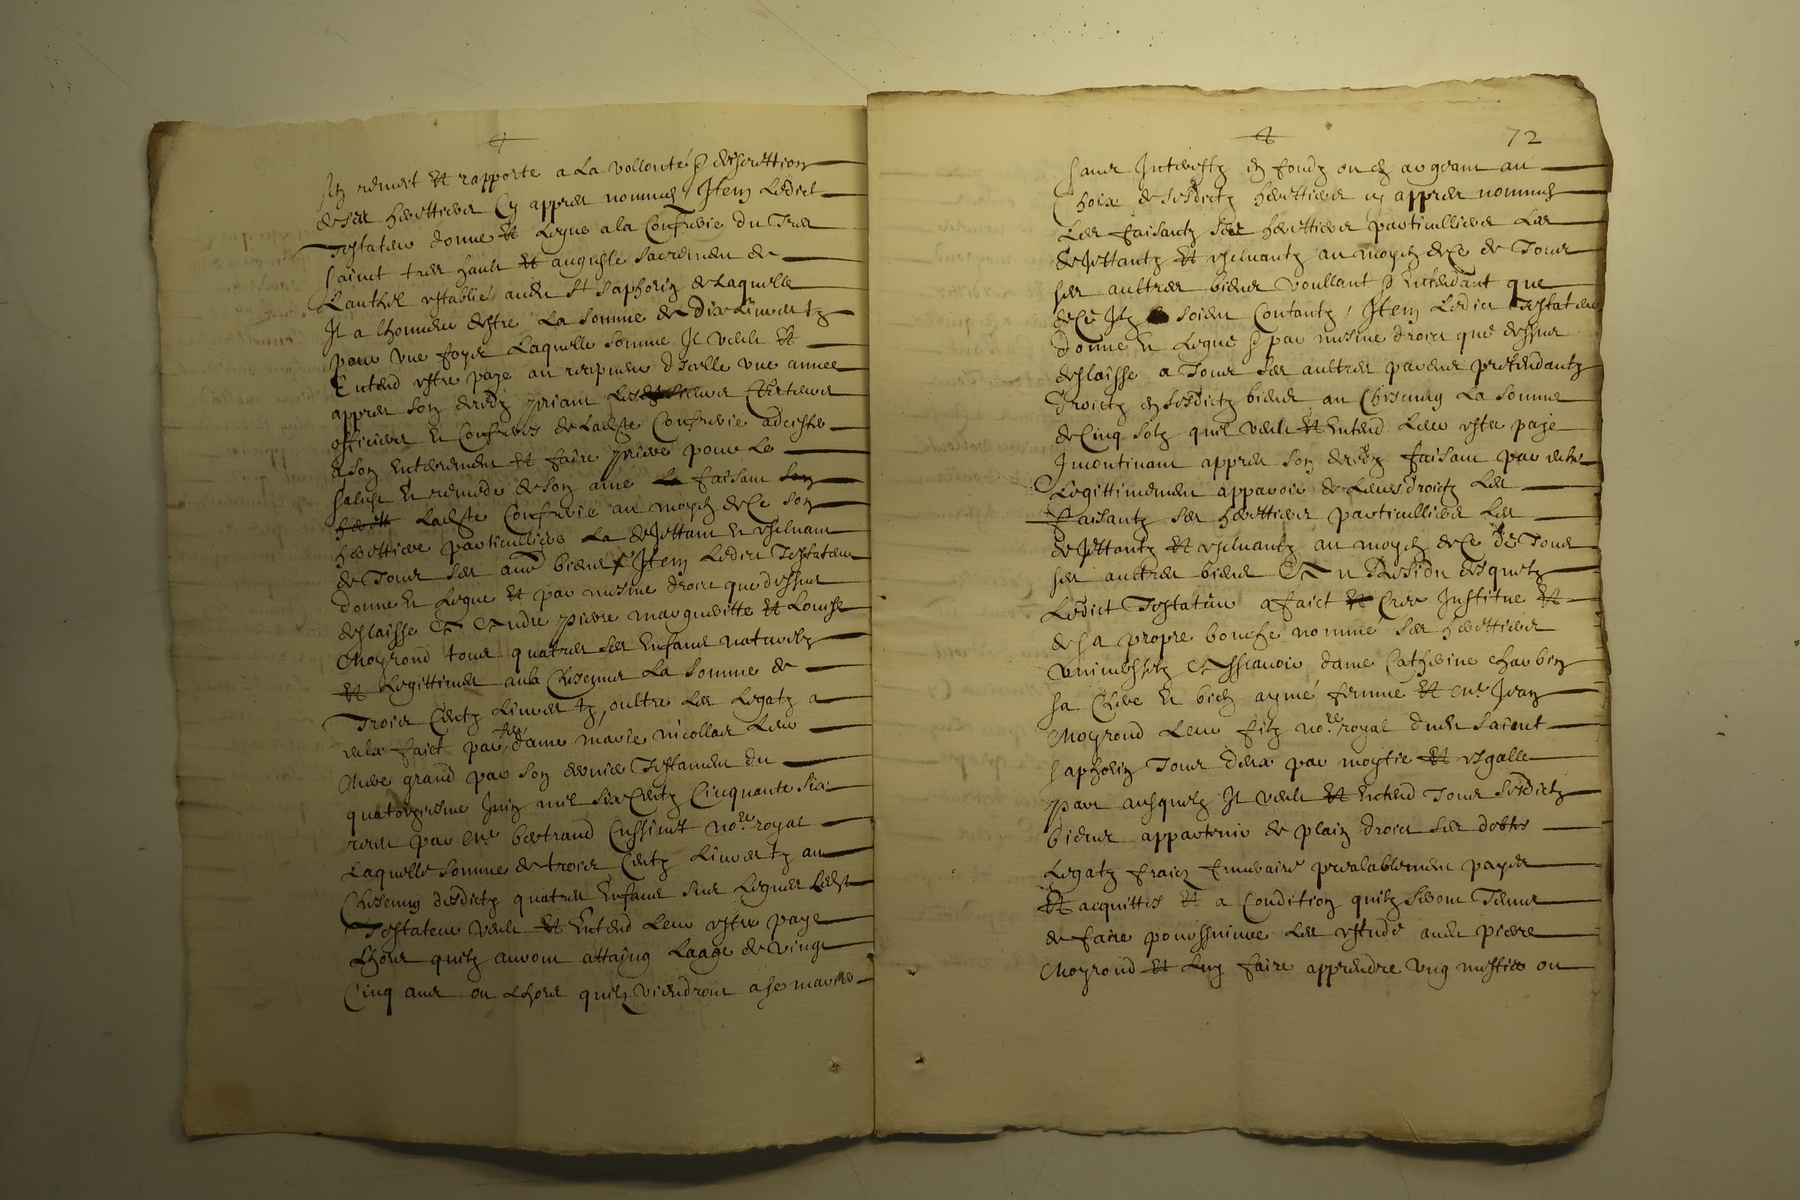 Il remect et rapporte a la vollonté & discrettion
de ses herettiers cy appres nommes / Item Ledict
Testateur donne et Legue a la Confrerie du Tres
sainct tres hault et auguste sacrement de
Lauthel establie audit St Saphorin de laquelle
Il a lhonneur destre La somme de dix Livres tz
pour une foys Laquelle somme Il veult et
Entend estre paye au recepueur dicelle une annee
appres son deces priant les chers
officiers et Confreres de ladte Confrerie adcister
a son Enterrement et faire prieres pour le
salust et remede de son ame La faisant son
herett Ladte Confrerie au moyen de ce son
herettiere particulliere La dejettant et excluant
de Tous ses aues biens / Item Ledict Testateur
donne et Legue et par mesme droict que dessus
deslaisse A Andre pierre margueritte et Louise
Moyroud tous quatres ses Enfans naturelz
et Legittimes aulx Chescungs La somme de
Trois Centz Livres tz, oultre Les Legatz a
eulx faict par feu dame marie nicollas Leur
Mere grand par son dernier Testament du
quatorziesme Juin mil six Centz Cinquante six
receu par me bertrand Cussinet nore royal
Laquelle somme de trois Centz Livres tz au
Chescung desdictz quatres Enfans sus Legues Ledt
Testateur veult et Entend Leur estre paye
Lhors quilz auront attaing Laage de vingt
Cinq ans ou Lhors quilz viendront a se marier
72
sans Interestz en fondz ou en argent au
Choix de sesdictz herettiers cy appres nommes
Les faisantz ses herettiers particulliers Les
dejettantz et excluantz au moyen de ce de Tous
ses aultres biens voullant & Entendant que
de ce Ilz soient Contantz / Item Ledict Testateur
donne et Legue & par mesme droict que dessus
deslaisse a Tous ses aultres parens pretendantz
droictz en sesdictz biens au Chescung La somme
de Cinq solz quil veult et Entend Leur estre paye
Incontinant appres son deces faisant par eulx
Legittimement apparoir de Leurs droictz Les
faisantz ses herettiers particulliers Les
dejettantz et excluantz au moyen de ce de Tous
ses aultres biens Et Au Residu desquelz
Ledict Testateur a faict et Cree Institue et
de sa propre bouche nomme ses herettiers
universselz Assavoir dame Catherine charbon
sa Chere et bien aymé femme et me Jean
Moyroud Leur filz nore royal dudt saient
saphorin Tous deux par moytie et esgalle
part ausquelz Il veult et Entend Tous sesdictz
biens appartenir de plain droict ses debtes
Legatz fraiez funeraire prealablement payes
et acquittes et a Condition quilz seront Tenus
de faire poursuivre Les estude audt pierre
Moyroud et luy faire apprendre ung mestier ou